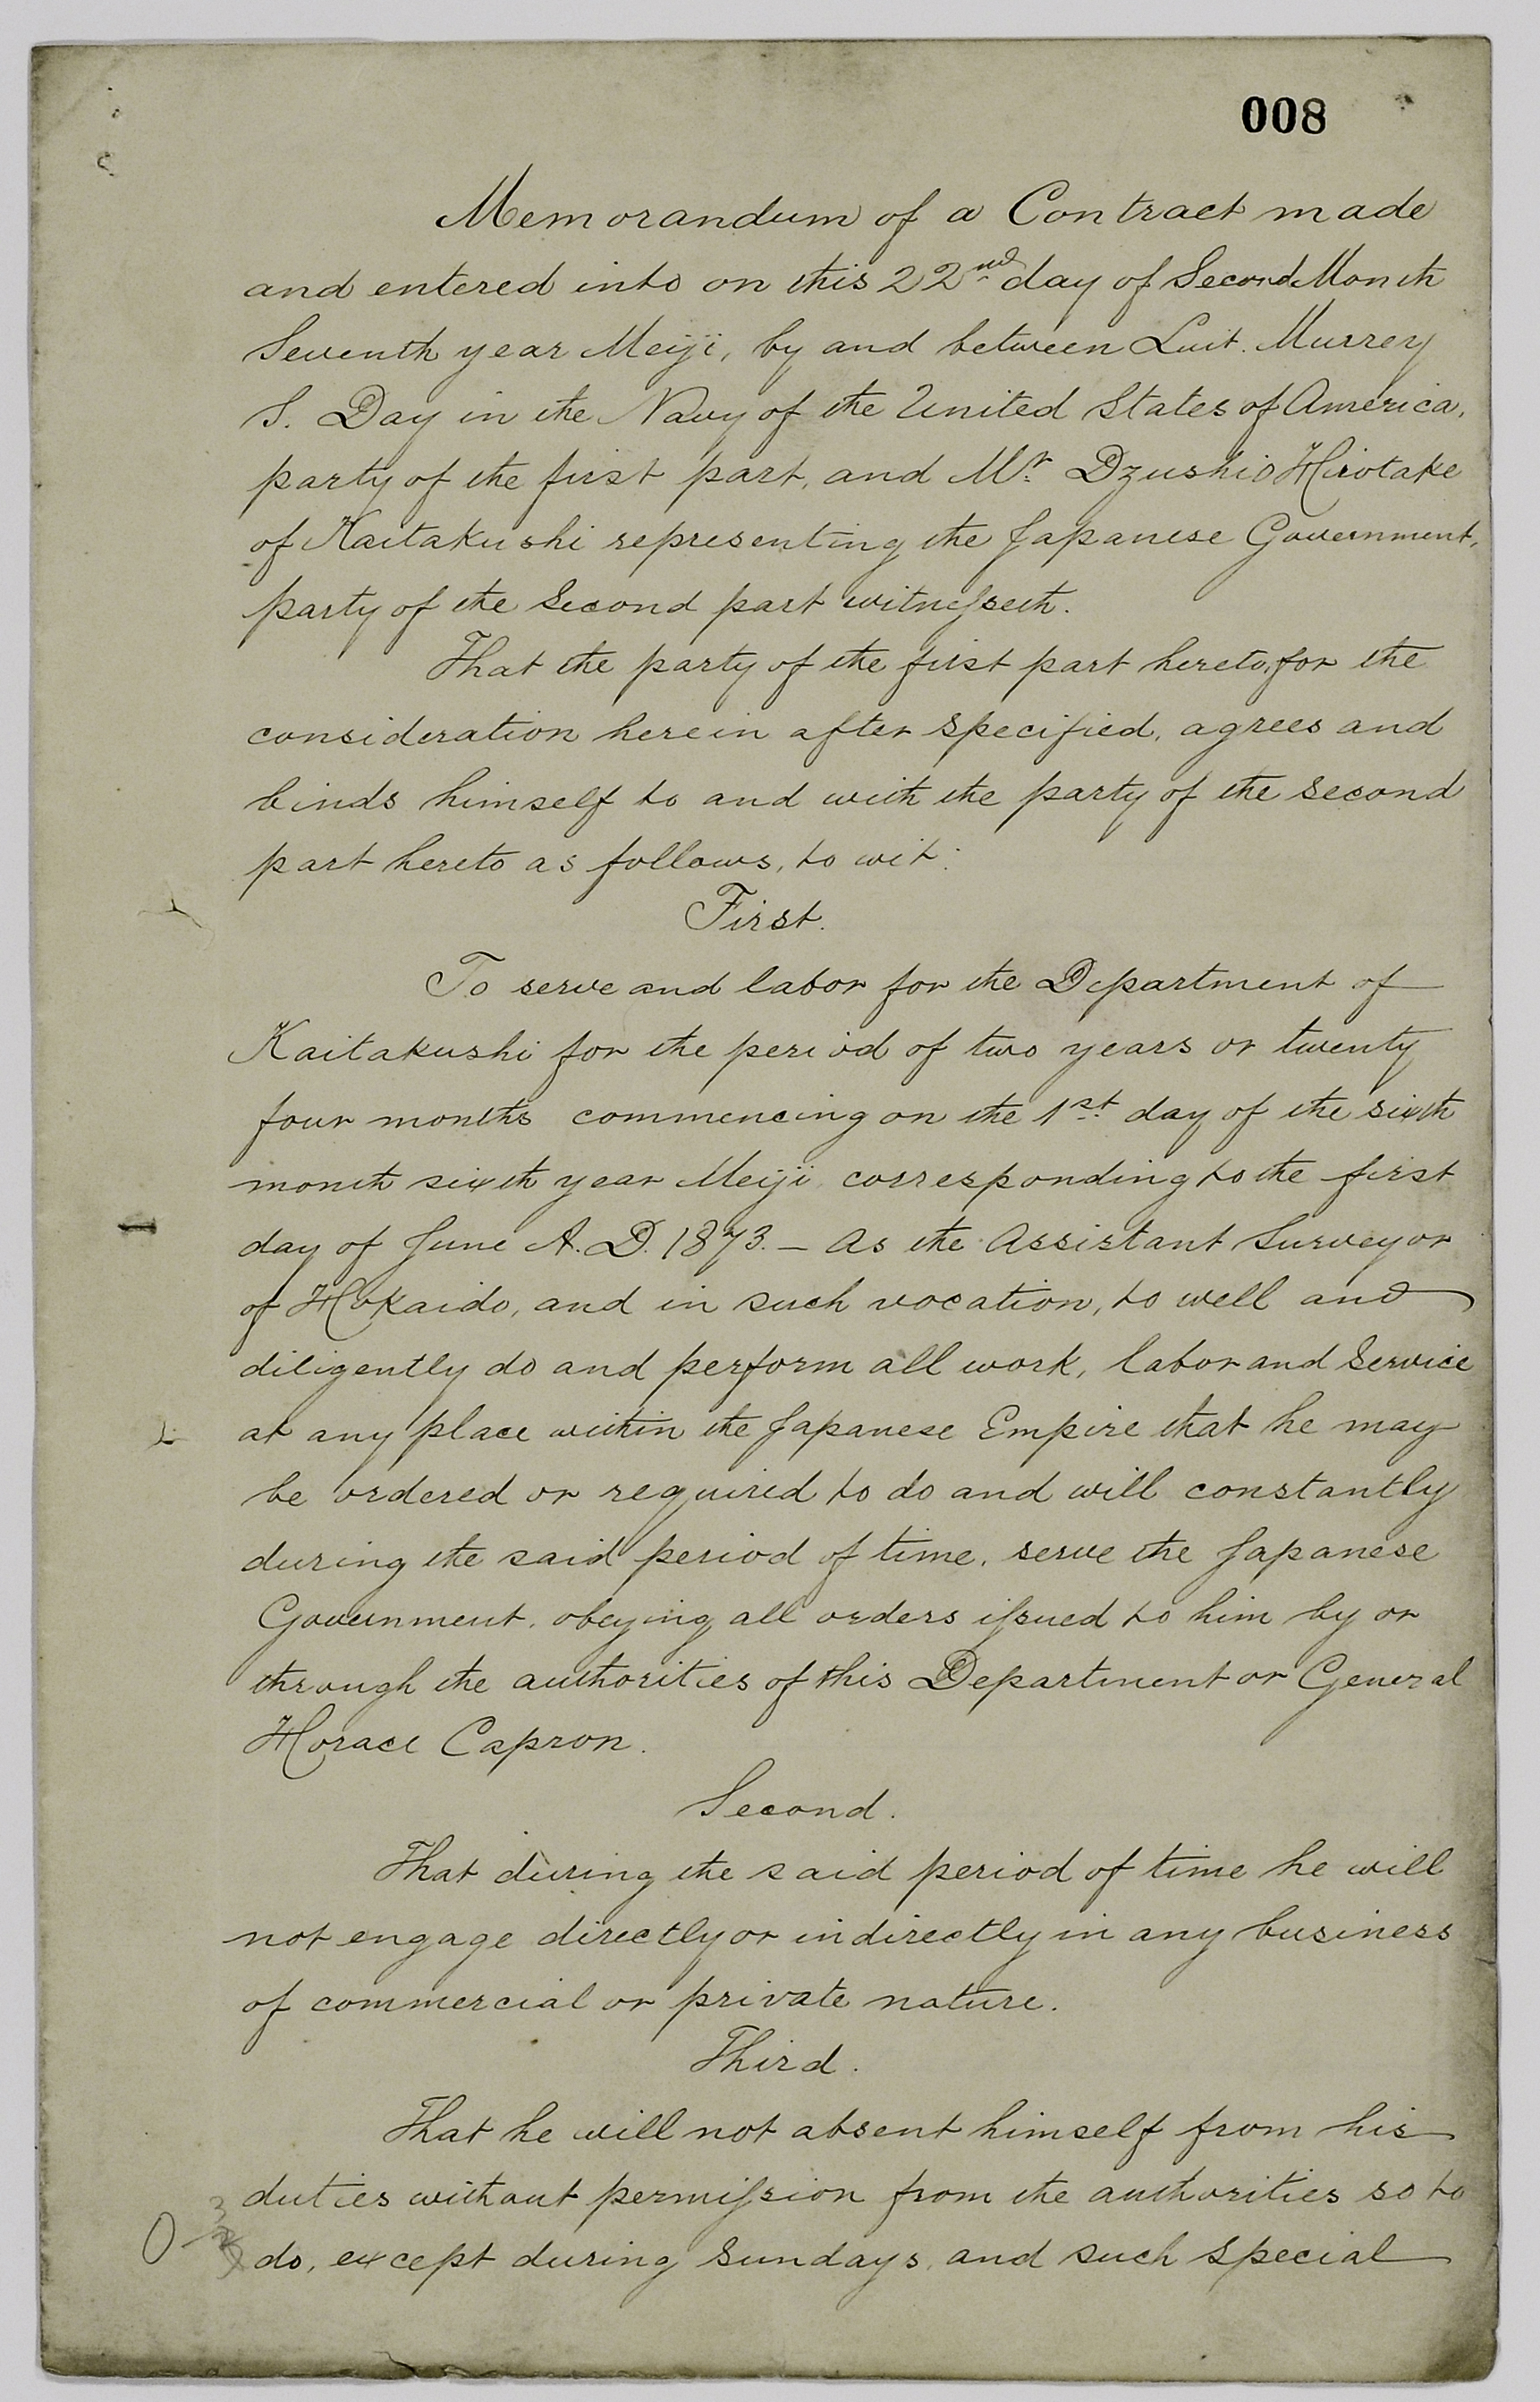 008
Memorandum of a Contract made
and entered into on this 22nd day of Second Month
Seventh year Meiji, by and between Luit. Murrey
S. Day in the Navy of the United States of America,
party of the first part, and Mr. Dzushio Hirotake
of Kaitakushi representing the Japanese Government,
party of the Second part witnesseth.
That the party of the first part hereto, for the
consideration herein after specified, agrees and
binds himself to and with the party of the second
part hereto as follows, to wit:
First.
To serve and labor for the Department of
Kaitakushi for the period of two years or twenty
four months commencing on the 1st day of the sixth
month sixth year Meiji corresponding to the first
day of June A. D. 1873. — As the Assistant Surveyor
of Hokaido, and in such vocation, to well and
diligently do and perform all work, labor and Service
at any place within the Japanese Empire that he may
be ordered or required to do and will constantly
during the said period of time, serve the Japanese
Government, obeying all orders issued to him by or
through the authorities of this Department or General
Horace Capron.
Second.
That during the said period of time he will
not engage directly or indirectly in any business
of commercial or private nature.
Third.
That he will not absent himself from his
duties without permission from the authorities so to
do, except during Sundays, and such special